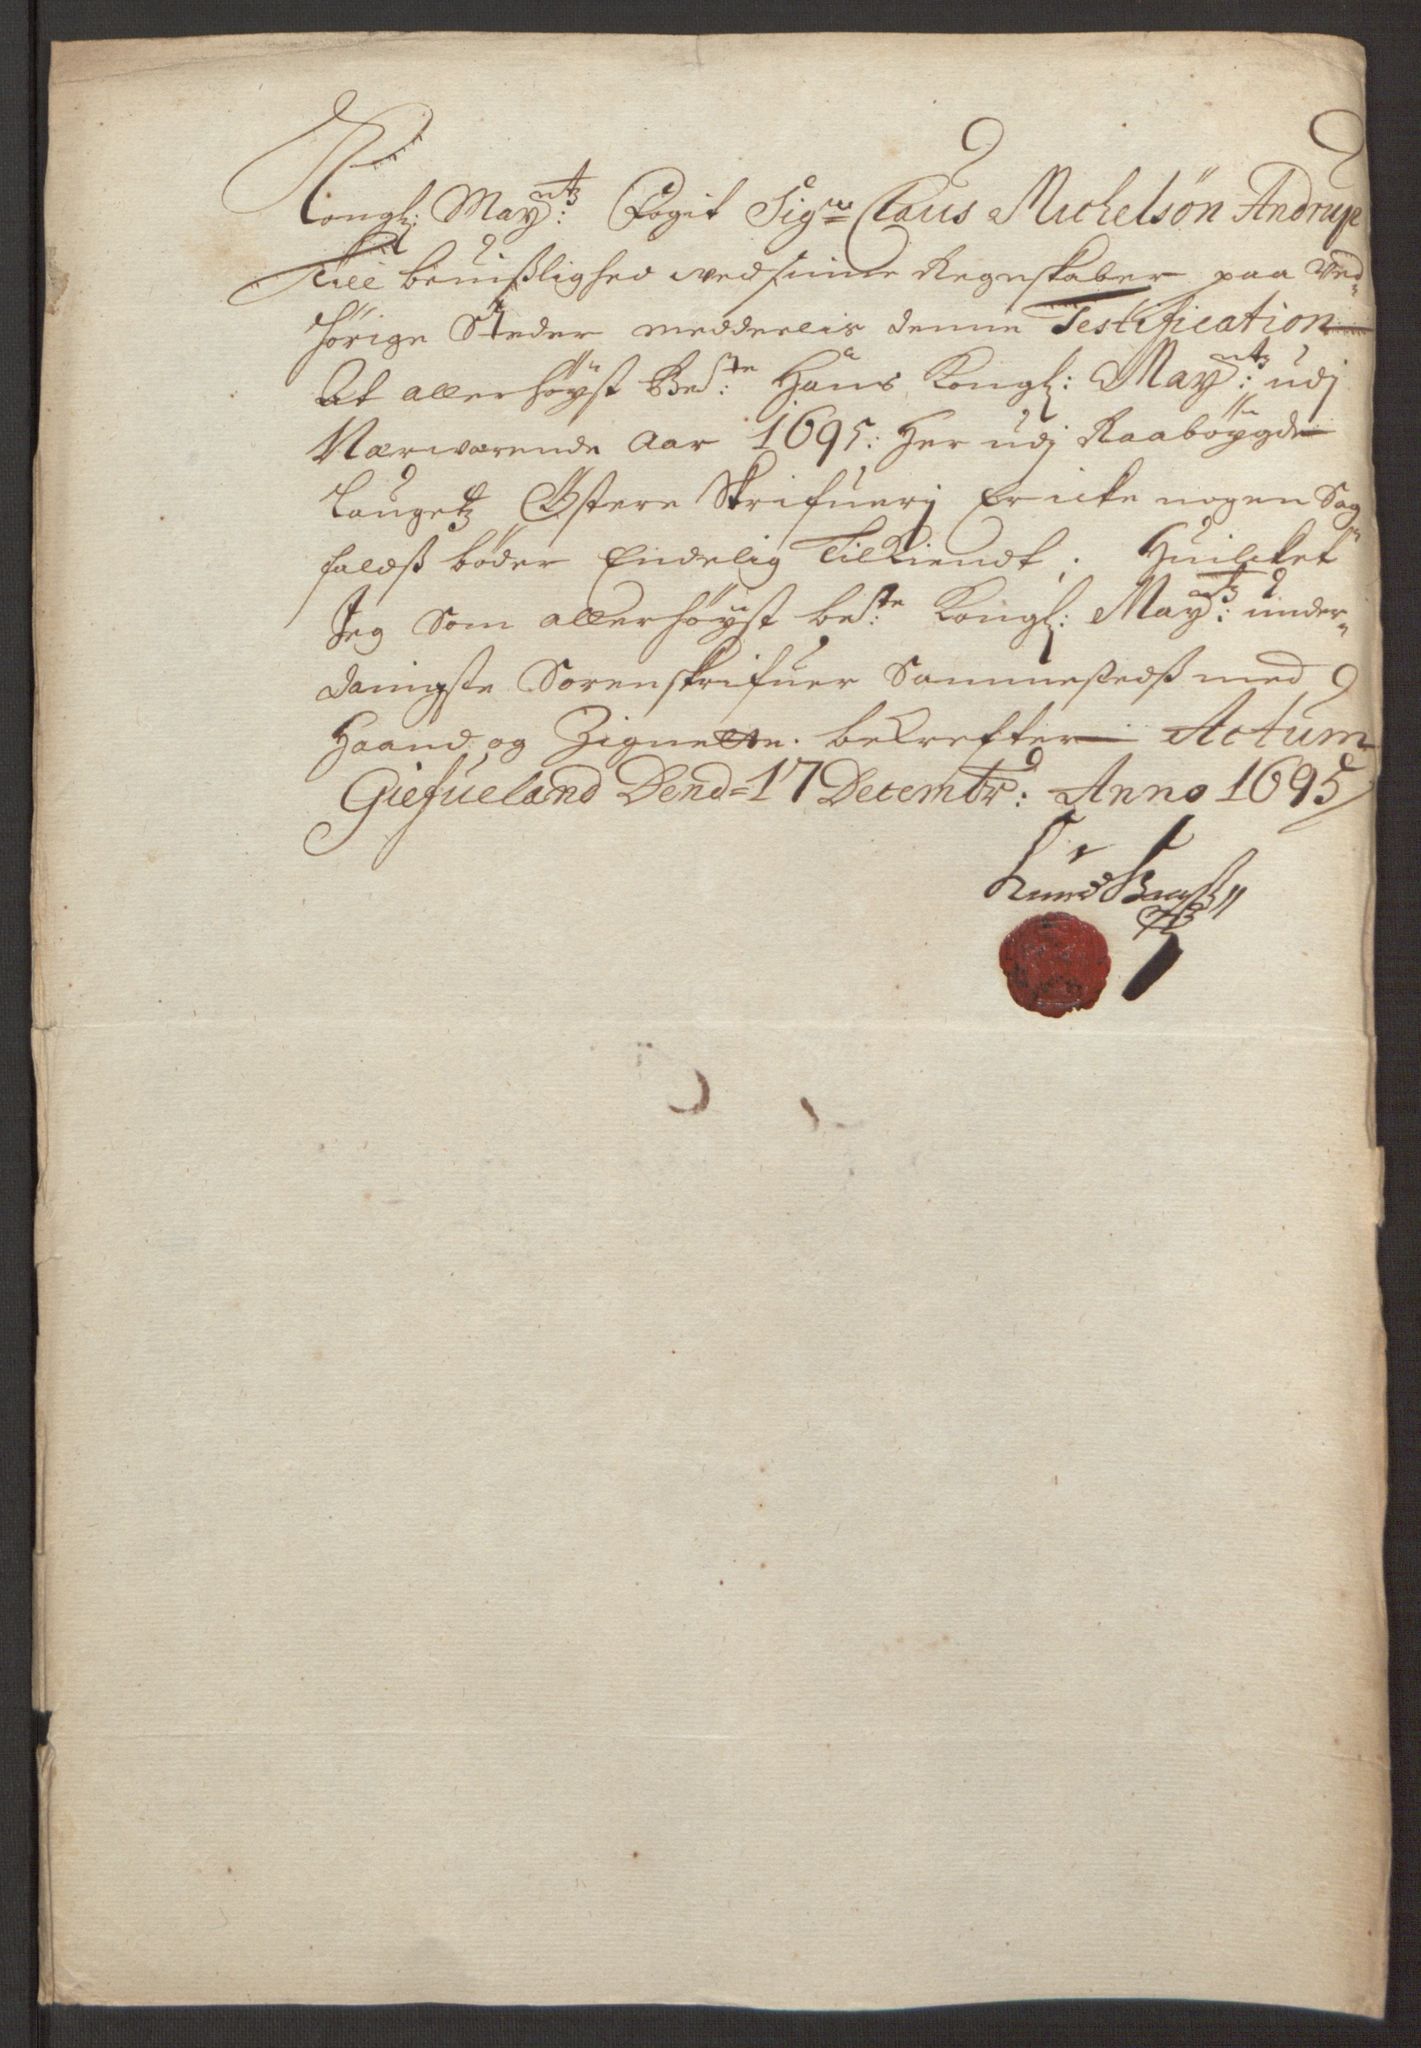 Kongl: Mayntz: Fogit Sigr Claus Michelsön Andrup
Till beuißlighed ved sinne Regnskaber paa Ved-
hörige Steder meddeelis denne Testification
At allerhöyst Bedste: Hans Kongl: Mayntz: udj
Nærwærende Aar 1695: Her udj Raaböygde
Laugetz Östere Skrifuerj Er icke nogen Sag-
faldß böder Endelig Tilkiendt; Huilcket
Jeg Som allerhöyst beste: Kongl: Maytz: under-
danigste Sorenskrifuer Sammestedß med
Haand og Zignette bekrefter Actum
Giefueland Dend= 17 Decembr: Anno 1695
Knud